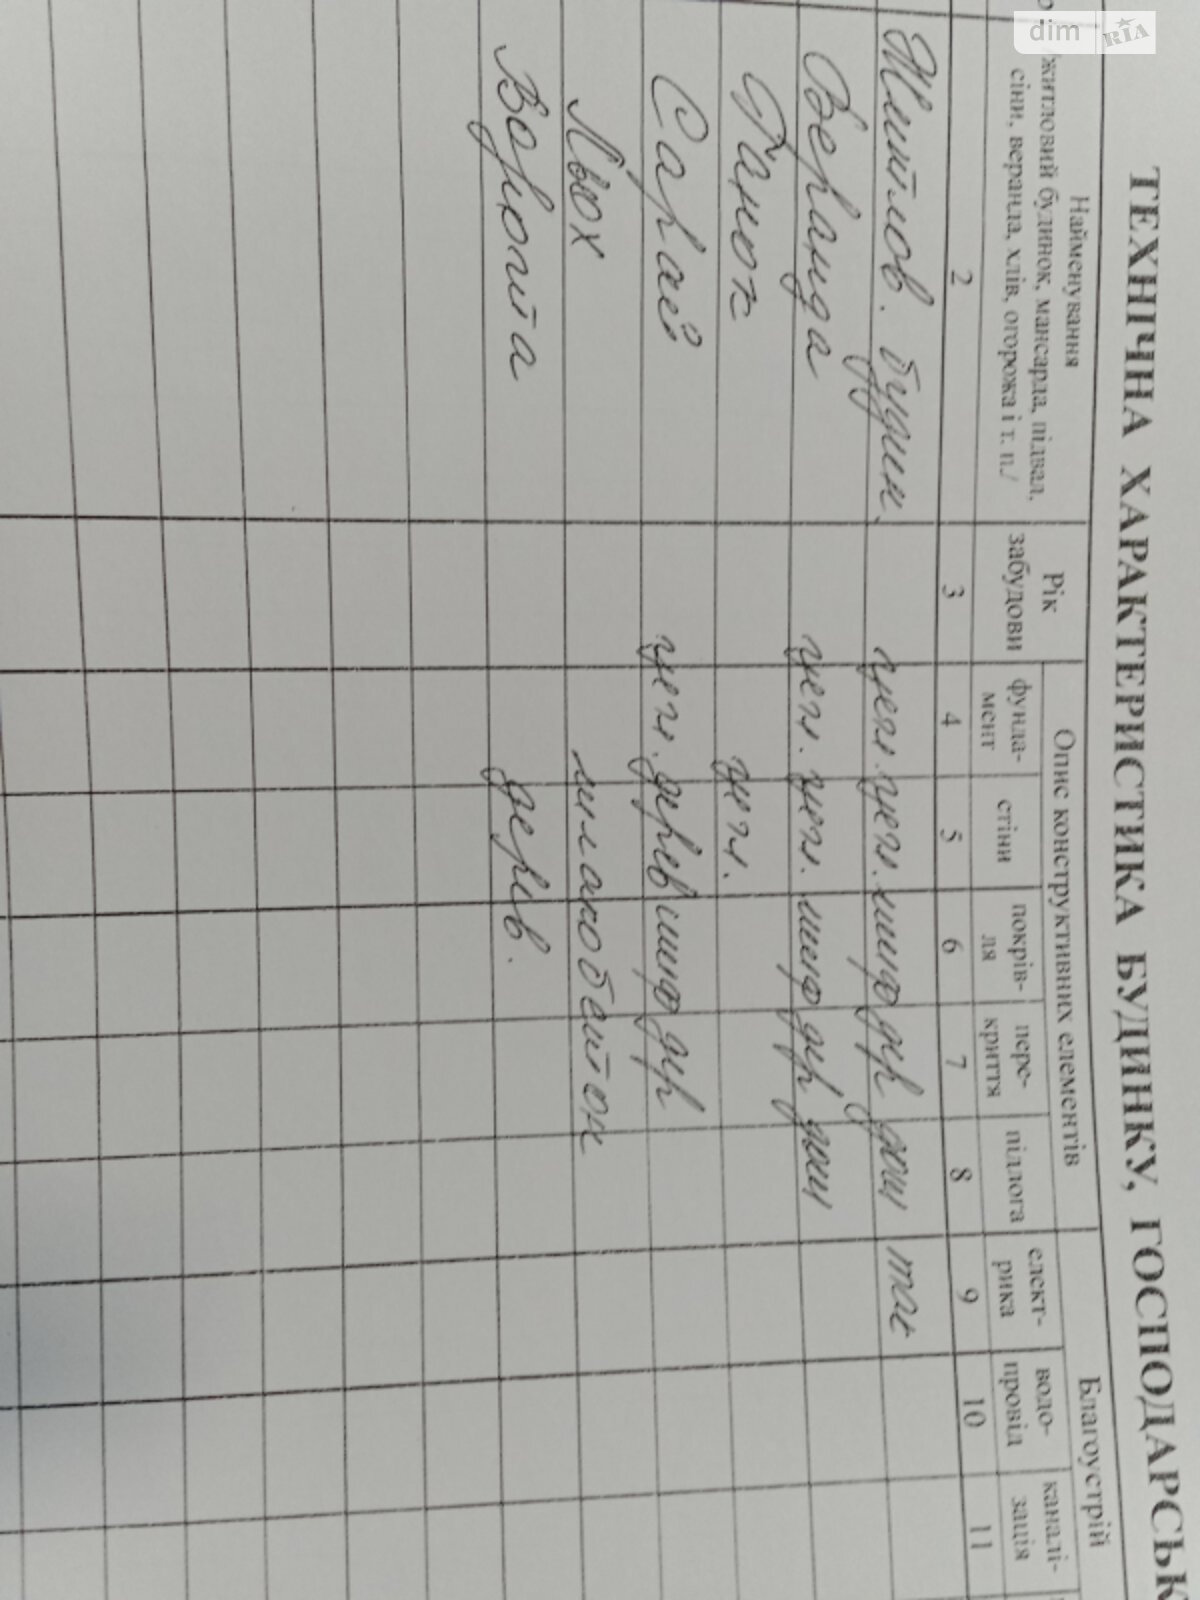 dim RIA
ТЕХНІЧНА ХАРАКТЕРИСТИКА БУДИНКУ, ГОСПОДАРСЬК
Найменування
/житловий будинок, мансарда, підвал,
сіни, веранда, хлів, огорожа і т. п./
Рік
забудови
Опис конструктивних елементів
Благоустрій
фунда-
мент
стіни
покрів-
ля
пере-
криття
підлога
елект-
рика
водо-
провід
каналі-
зація
2 3 4 5 6 7 8 9 10 11
Житлов. будин. цегл. цегл. шиф дер дощ так
Веранда цегл. цегл. шиф дер дощ
Ганок цегл.
Сарай цегл. дерев шиф дер
Льох шлакобетон
Ворота дерев.